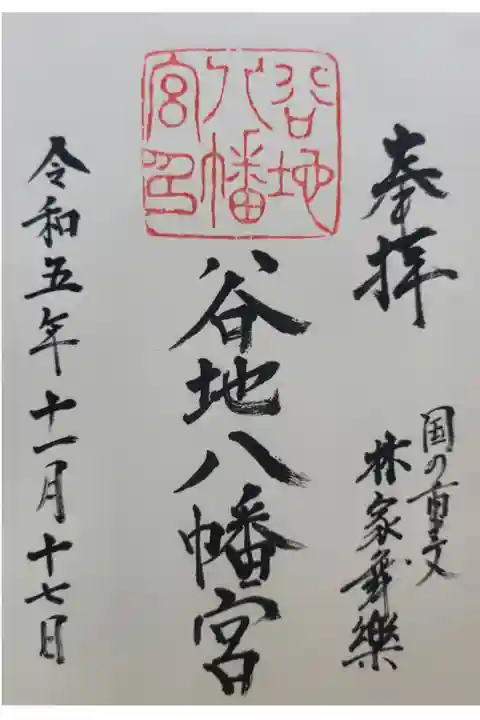 奉拝
国の重文
林家舞樂
谷地
八幡
宮印
谷地八幡宮
令和五年十一月十七日